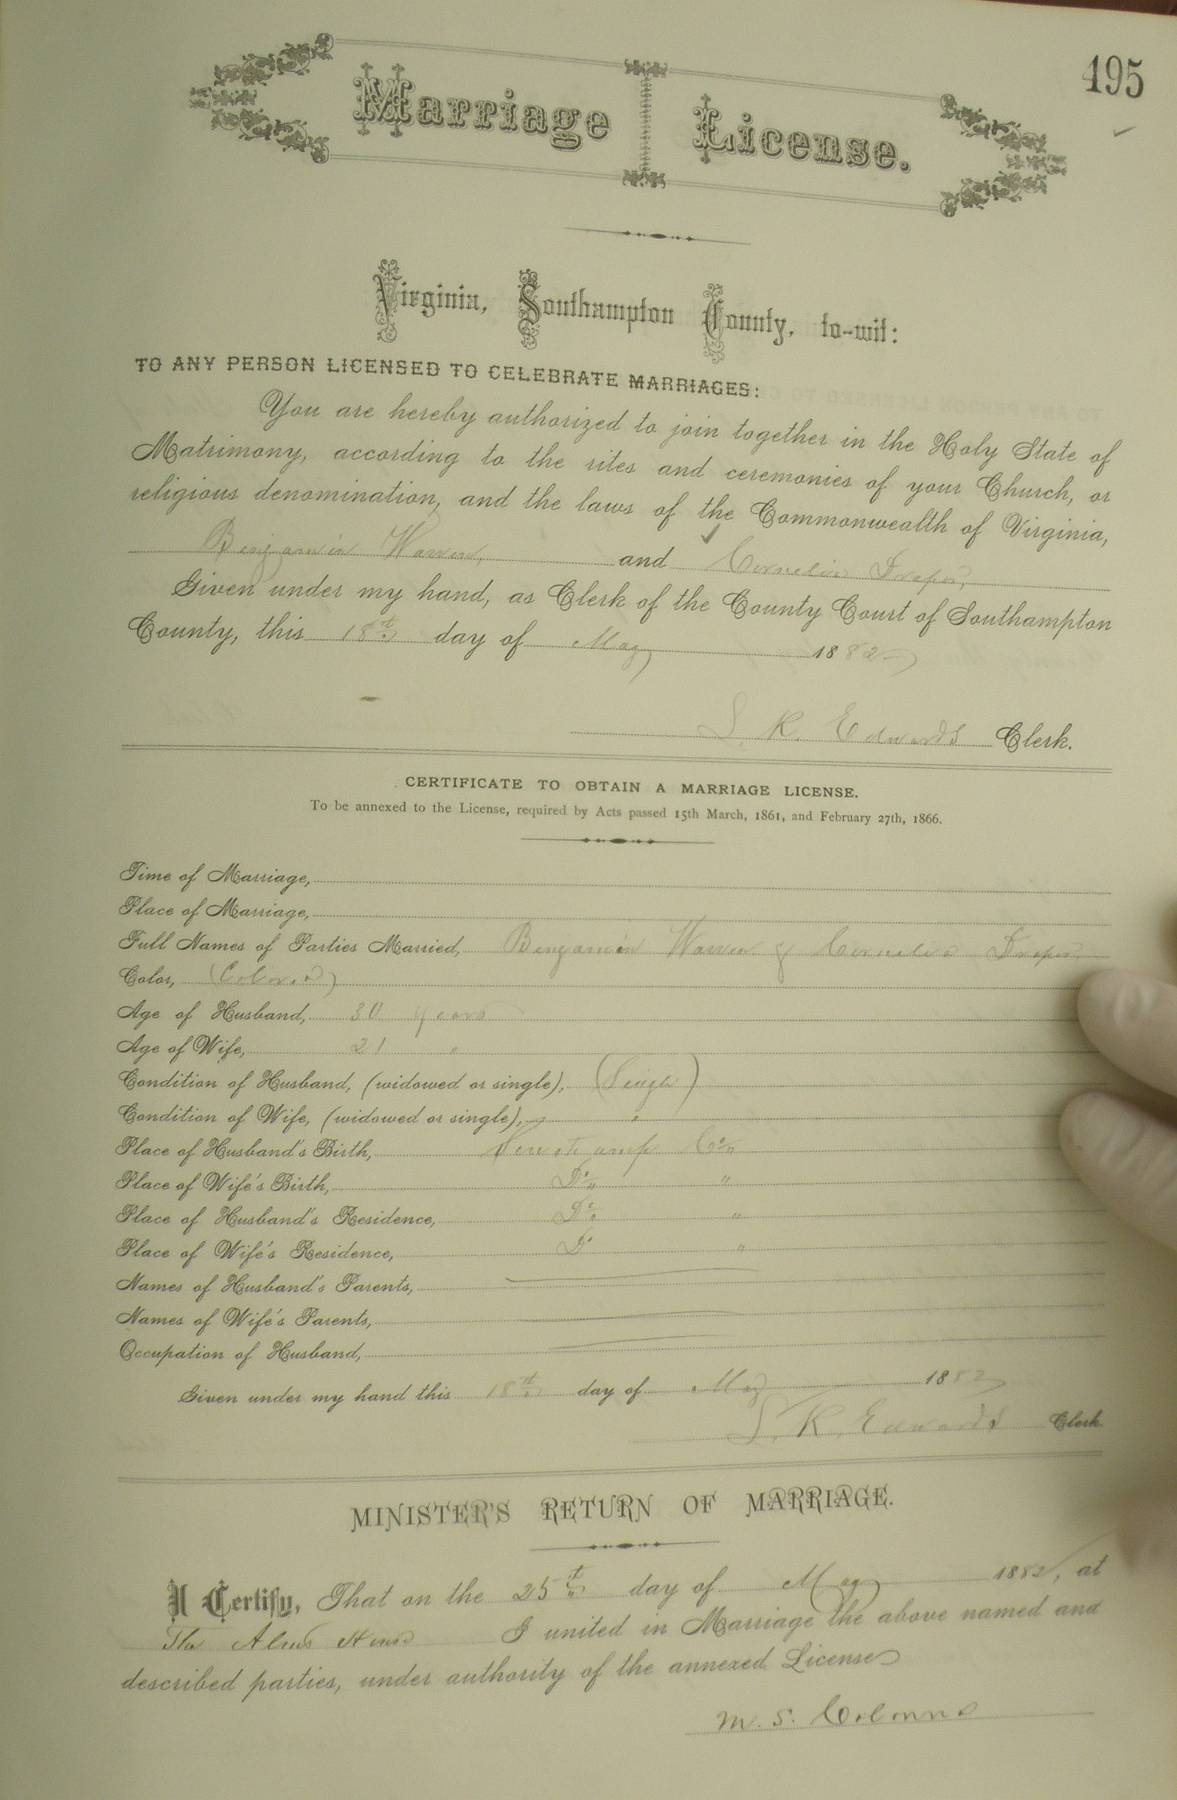 495
Marriage License.
Virginia, Southampton County, to-wit:
TO ANY PERSON LICENSED TO CELEBRATE MARRIAGES:
You are hereby authorized to join together in the Holy State of
Matrimony, according to the rites and ceremonies of your Church, or
religious denomination, and the laws of the Commonwealth of Virginia,
Benjamin Warren, and Cornelia Draper,
Given under my hand, as Clerk of the County Court of Southampton
County, this 18th day of May 1882
L. R. Edwards Clerk.
CERTIFICATE TO OBTAIN A MARRIAGE LICENSE.
To be annexed to the License, required by Acts passed 15th March, 1861, and February 27th, 1866.
Time of Marriage,
Place of Marriage,
Full Names of Parties Married, Benjamin Warren & Cornelia Draper
Color, (Colored)
Age of Husband, 30 years
Age of Wife, 21 "
Condition of Husband, (widowed or single), (Single)
Condition of Wife, (widowed or single), "
Place of Husband's Birth, Southamp Co
Place of Wife's Birth, Do "
Place of Husband's Residence, Do "
Place of Wife's Residence, Do "
Names of Husband's Parents,
Names of Wife's Parents,
Occupation of Husband,
Given under my hand this 18th day of May 1882
L. R. Edwards Clerk
MINISTER'S RETURN OF MARRIAGE.
I Certify, That on the 25th day of May 1882, at
The Alms House I united in Marriage the above named and
described parties, under authority of the annexed License
M. S. Colonna